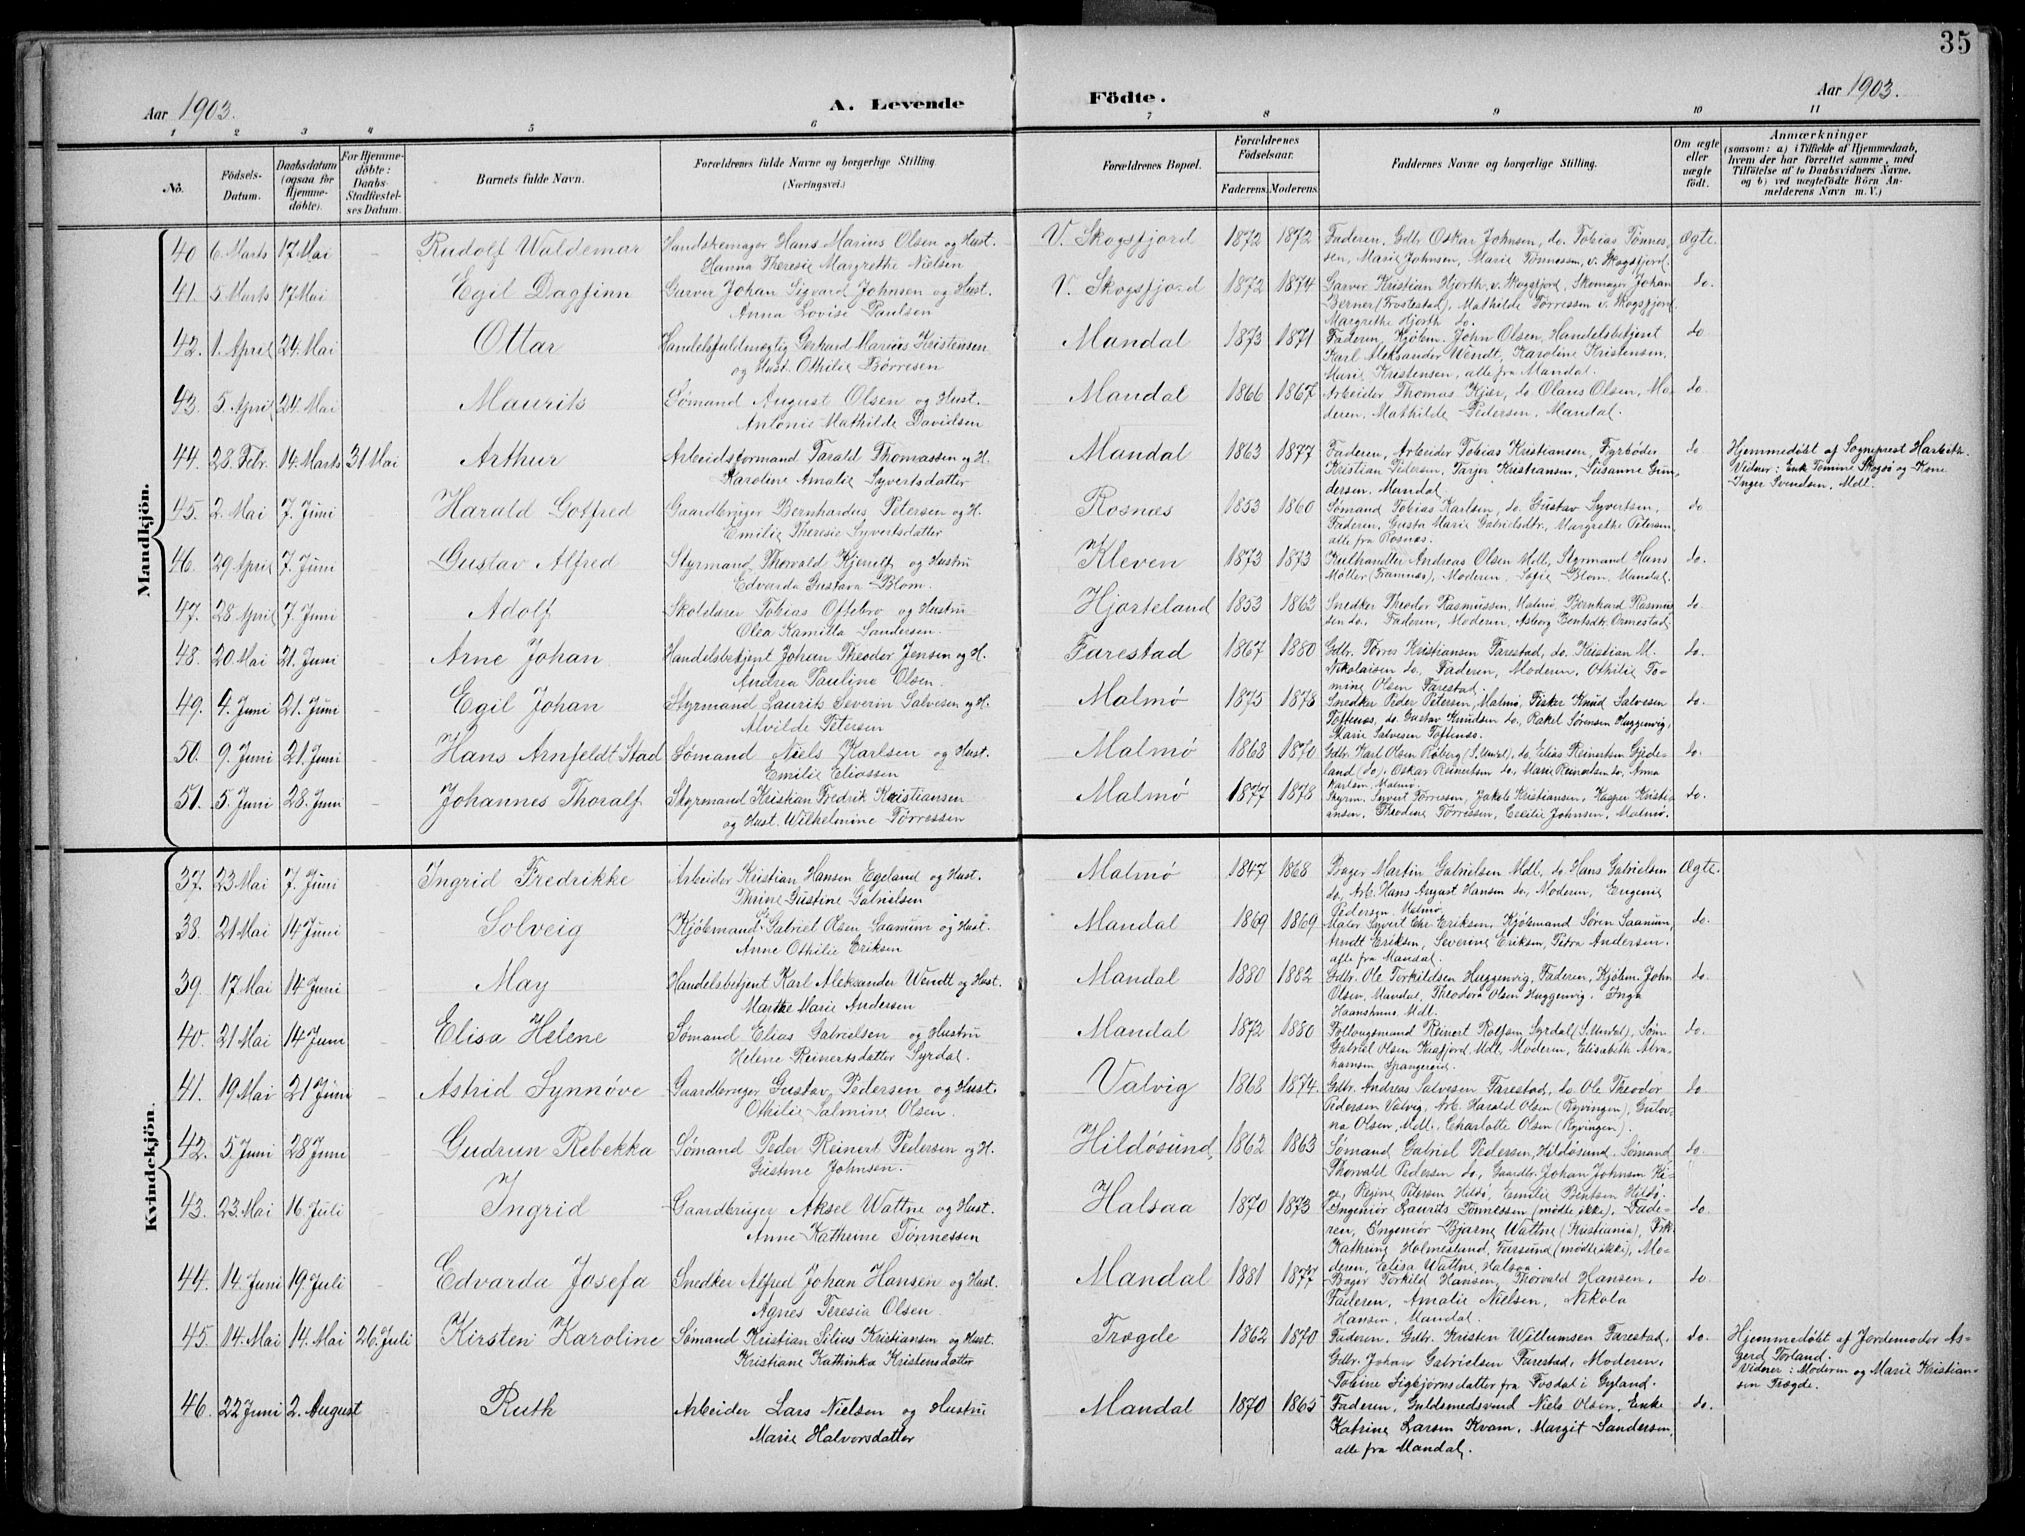 35
Aar 1903.
A. Levende
Födte.
Aar 1903.
1 2 3 4 5 6 7 8 9 10 11
No.
Födsels-Datum.
Daabsdatum (ogsaa for Hjemme-döbte).
For Hjemme-döbte: Daabs-Stadfæstel-ses Datum.
Barnets fulde Navn.
Forældrenes fulde Navne og borgerlige Stilling. (Næringsvei.)
Forældrenes Bopæl.
Forældrenes Födselsaar.
Faderens. Moderens.
Faddernes Navne og borgerlige Stilling.
Om ægte eller uægte födt.
Anmærkninger
(saasom: a) i Tilfælde af Hjemmedaab, hvem der har forrettet samme, med Tilföielse af to Daabsvidners Navne. og b) ved uægtefödte Börn An-melderens Navn m. V.)
Mandkjön.
40 6 Marts 17 Mai - Rudolf Waldemar Handskemager Hans Marius Olsen og Hust. V. Skogsfjord 1872 1872 Faderen, Gdbr. Oskar Johnsen, do. Tobias Tønnes- Ægte
Hanna Theresie Margrethe Nielsen sen, Marie Johnsen, Marie Tønnessen, v. Skogsfjord.
41. 5 Marts 17 Mai - Egil Dagfinn Garver Johan Sigvard Johnsen og Hust. V. Skogsfjord 1872 1874 Garver Kristian Hjorth v. Skogsfjord, Skomager Johan do.
Anna Lovise Paulsen Berner (Frostestad), Mathilde Tørressen v. Skogsfjord
Margrethe Hjorth do.
42. 1. April 24 Mai - Ottar Handelsfuldmægtig Gerhard Marius Kristensen Mandal 1873 1871 Faderen, Kjøbm. John Olsen, Handelsbetjent do
og Hust. Othilie Børresen Karl Aleksander Wendt, Karoline Kristensen,
Marie Kristensen, alle fra Mandal.
43. 5. April 24. Mai - Maurits Sømand August Olsen og Hust. Mandal 1866 1867 Arbeider Thomas Kjær, do Olaus Olsen, Mo- do.
Antonie Mathilde Davidsen deren, Mathilde Pedersen, Mandal.
44. 28. Febr. 14. Marts 31 Mai Arthur Arbeidsformand Tarald Thomassen og H. Mandal 1863 1877 Faderen, Arbeider Tobias Kristiansen, Fyrbøder do Hjemmedøbt af Sogneprest
Karoline Amalie Syvertsdatter Kristian Pedersen, Tarjer Kristiansen, Susanne Gun- Vidner: Enk Tomine Skogsø og Kone
dersen, Mandal Inger Svendsen, Mdl.
45. 2. Mai 7. Juni - Harald Gotfred Gaardbruger Bernhardus Petersen og H. Rosnæs 1853 1860 Sømand Tobias Karlsen, do. Gustav Syvertsen, do
Emilie Theresie Syvertsdatter Faderen, Gusta Marie Gabrielsdtr, Margrethe Petersen
alle fra Rosnæs.
46. 29 April 7. Juni - Gustav Alfred Styrmand Thorvald Kjerulf og Hustru Kleven 1873 1873 Kulhandler Andreas Olsen Mdl, Styrmand Hans do.
Edvarda Gustava Blom. Møller (Framnæs), Moderen, Sofie Blom, Mandal.
47. 28 April 7. Juni - Adolf Skolelærer Tobias Ottebro og Hustru Hjorteland 1853 1863 Snedker Theodor Rasmussen, Malmø, Bernhard Rasmus- do.
Olea Kamilla Sandersen. sen do. Faderen, Moderen, Ormestad.
48. 20 Mai 21. Juni - Arne Johan Handelsbetjent Johan Theodor Jensen og H. Farestad 1867 1880 Gdbr. Tørres Kristiansen Farestad, do. Kristian M. do.
Andrea Pauline Olsen. Nikolaisen do. Faderen, Moderen, Othilie To-
mine Olsen Farestad.
49. 4. Juni 21. Juni - Egil Johan Styrmand Laurits Severin Salvesen og H. Malmø 1875 1878 Snedker Peder Petersen, Malmø, Fisker Knud Salvesen do.
Alvilde Petersen Toftenæs, do. Gustav Knudsen do, Rakel Sørensen Huggenvig,
Marie Salvesen Toftenæs.
50. 9. Juni 21. Juni - Hans Arnfeldt Stad Sømand Niels Karlsen og Hust. Malmø 1868 1870 Gdbr. Karl Olsen Røberg (S. Undal), do. Elias Reinertsen Gjede- do.
Emilie Eliassen land (do). Oskar Reinertsen do. Marie Reinertsen do, Anna
Karlsen, Malmø.
51. 5. Juni 28. Juni - Johannes Thoralf Styrmand Kristian Fredrik Kristiansen Malmø 1877 1878 Styrm. Syvert Tørressen, Jakob Kristiansen, Kasper Kristi- do.
og Hust. Wilhelmine Tørressen ansen, Thodine Tørressen, Cecilie Johnsen, Malmø.
Kvindekjön.
37. 23 Mai 7. Juni - Ingrid Fredrikke Arbeider Kristian Hansen Egeland og Hust. Malmø 1847 1868 Bager Martin Gabrielsen Mdl, do. Hans Gabrielsen Ægte.
Thrine Gustine Gabrielsen do, Arb. Hans August Hansen do, Moderen, Eugenie
Pedersen Malmø
38. 21 Mai 14 Juni - Solveig Kjøbmand Gabriel Olsen Saanum og Hust. Mandal 1869 1869 Maler Syvert Chr. Eriksen, Kjøbmand Søren Saanum, do.
Anne Othilie Eriksen Arndt Eriksen, Severine Eriksen, Petra Andersen.
alle fra Mandal.
39. 17 Mai 14 Juni - May Handelsbetjent Karl Aleksander Wendt og Hust. Mandal 1880 1882 Gdbr. Ole Torkildsen Huggenvig, Faderen, Kjøbm. John do.
Marthe Marie Andersen Olsen, Mandal, Theodora Olsen Huggenvig. Inga
Mdl.
40. 21 Mai 14 Juni - Elisa Helene Sømand Elias Gabrielsen og Hustru Mandal 1872 1880 Reinert Syrdal (S. Undal), Søm. do.
Helene Reinertsdatter Syrdal. Gabriel Olsen Mdl, Moderen, Elisabeth Abra-
hamsen Spangereid.
41. 19 Mai 21 Juni - Astrid Synnøve Gaardbruger Gustav Pedersen og Hust Valvig 1868 1874. Gdbr. Andreas Salvesen, Farestad, do. Ole Theodor do
Othilie Salmine Olsen. Pedersen Valvig, Arb. Harald Olsen (Ryvingen), Gulov-
na Olsen, Mdl. Charlotte Olsen (Ryvingen).
42. 5 Juni 28 Juni - Gudrun Rebekka Sømand Peder Reinert Pedersen og H. Hildøsund, 1862 1863 Sømand Gabriel Pedersen, Hildøsund. Sømand do.
Gustine Johnsen. Thorvald Pedersen do, Gaardbr. Johan Johnsen
Regine Petersen Hildø, Emilie Bentsen Hildø.
43. 23 Mai 16 Juli - Ingrid Gaardbruger Aksel Wattne og Hust. Halsaa 1870 1873 Ingeniør Laurits Tønnessen (mødte ikke), Fade- do.
Anne Kathrine Tønnessen ren, Ingeniør Bjarne Wattne (Kristiania), Frk
Kathrine Holmeslund, Farsund (mødte ikke), Mo-
deren, Elisa Wattne, Halsaa.
44. 14 Juni 19 Juli - Edvarda Josefa Snedker Alfred Johan Hansen og Hust. Mandal 1881 1877 Bager Torkild Hansen, Thorvald Hansen, do.
Agnes Teresia Olsen. Faderen, Amalie Nielsen, Nikola
Hansen, Mandal.
45. 14. Mai 14. Mai 26. Juli Kirsten Karoline Sømand Kristian Silius Kristiansen og Hust. Trægde 1862 1870 Faderen, Gdbr. Kristen Willumsen Farestad, do. Hjemmedøbt af Jordemoder As-
Kristiane Kathinka Kristensdatter Gdbr. Johan Gabrielsen Farestad, Moderen, gerd Torland.
Tobine Sigbjørnsdatter fra Fosdal i Gyland. Vidner: Moderen og Marie Kristian-
sen Trægde.
46. 22 Juni 2. August Ruth Arbeider Lars Nielsen og Hustru Mandal 1870 1865 Faderen, Guldsmedsvend Niels Olsen, Enke do.
Marie Halvorsdatter Katrine Larsen Kvam, Margit Sandersen,
alle fra Mandal.